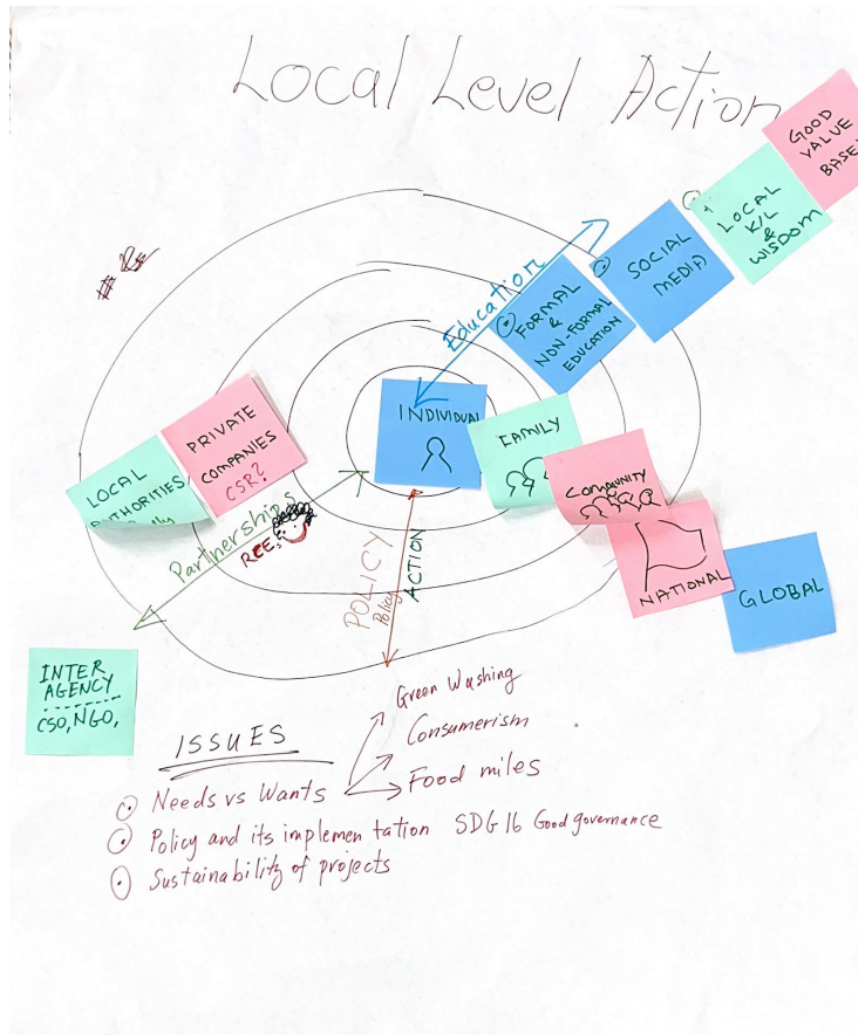 Local Level Action
GOOD
VALUE
BASE
LOCAL
K/L
&
WISDOM
SOCIAL
MEDIA
Education
FORMAL
&
NON-FORMAL
EDUCATION
INDIVIDUAL
FAMILY
COMMUNITY
NATIONAL
GLOBAL
PRIVATE
COMPANIES
CSR?
LOCAL
AUTHORITIES
Partnerships
RCEs
POLICY
Policy
ACTION
INTER
AGENCY
CSO, NGO,
ISSUES
Green Washing
Consumerism
Food miles
Needs vs Wants
Policy and its implementation SDG 16 Good governance
Sustainability of projects